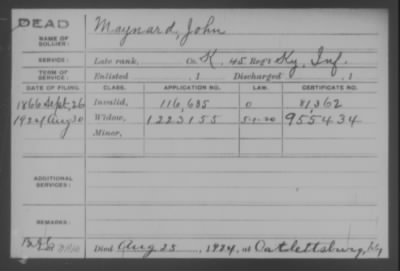 DEAD
NAME OF SOLDIER: Maynard, John
SERVICE: Late rank, Co. K, 45 Reg't Ky. Inf.
TERM OF SERVICE: Enlisted , 1 Discharged , 1
DATE OF FILING. CLASS. APPLICATION NO. LAW. CERTIFICATE NO.
1866 Sept. 26 Invalid, 116,635 0 81,362
1924 Aug 30 Widow, 1223155 5-1-20 955434
Minor,
ADDITIONAL SERVICES:
REMARKS:
Died Aug 25 , 1924, at Catlettsburg, Ky